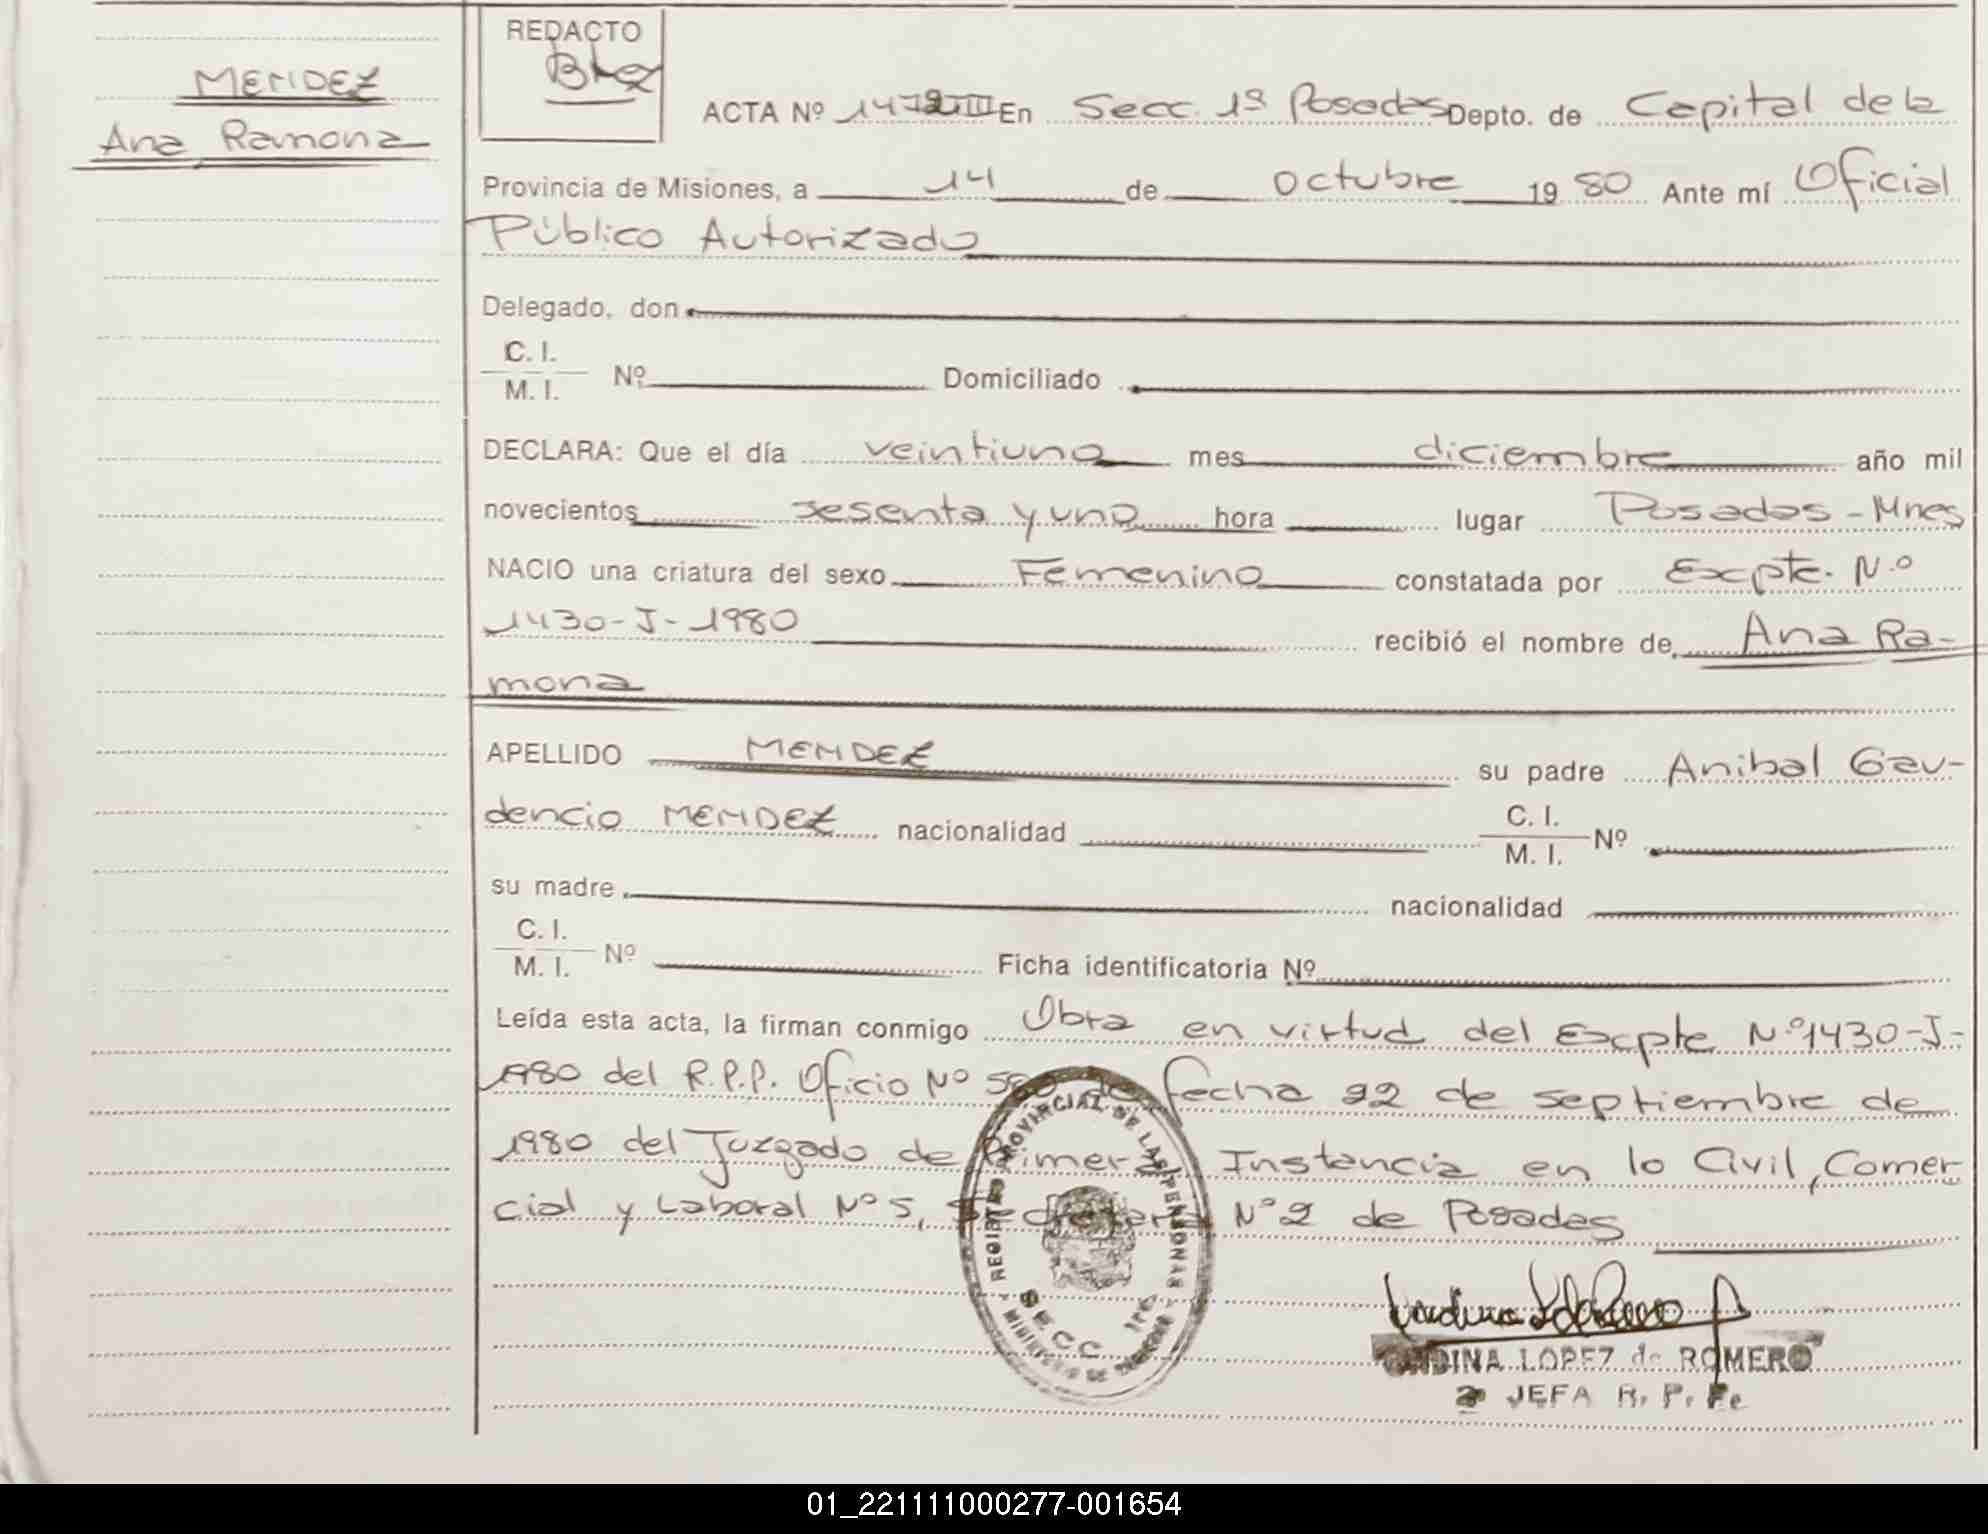 MENDEZ
Ana Ramona
REDACTO
ACTA Nº En Secc. 1ª Posadas Depto. de Capital de la
Provincia de Misiones, a 14 de octubre 19 80 Ante mí Oficial
Público Autorizado
Delegado, don
C. I.
M. I. Nº Domiciliado
DECLARA: Que el día veintiuno mes diciembre año mil
novecientos sesenta y uno hora lugar Posadas - Mnes
NACIO una criatura del sexo Femenino constatada por Excpte. N.º
1430-J-1980 recibió el nombre de Ana Ra-
mona
APELLIDO MENDEZ su padre Anibal Gau-
dencio MENDEZ nacionalidad C. I.
M. I. Nº
su madre nacionalidad
C. I.
M. I. Nº Ficha identificatoria Nº
Leída esta acta, la firman conmigo Obra en virtud del Excpte Nº 1430-J-
1980 del R.P.P. Oficio Nº de fecha 22 de septiembre de
1980 del Juzgado de Primera Instancia en lo Civil, Comer
cial y Laboral Nº 5, Secretaria Nº 2 de Posadas
REGISTRO PROVINCIAL DE LAS PERSONAS
MINISTERIO DE GOBIERNO
SECC. 1ra.
LOPEZ de ROMERO
JEFA R. P. Pe
01_221111000277-001654